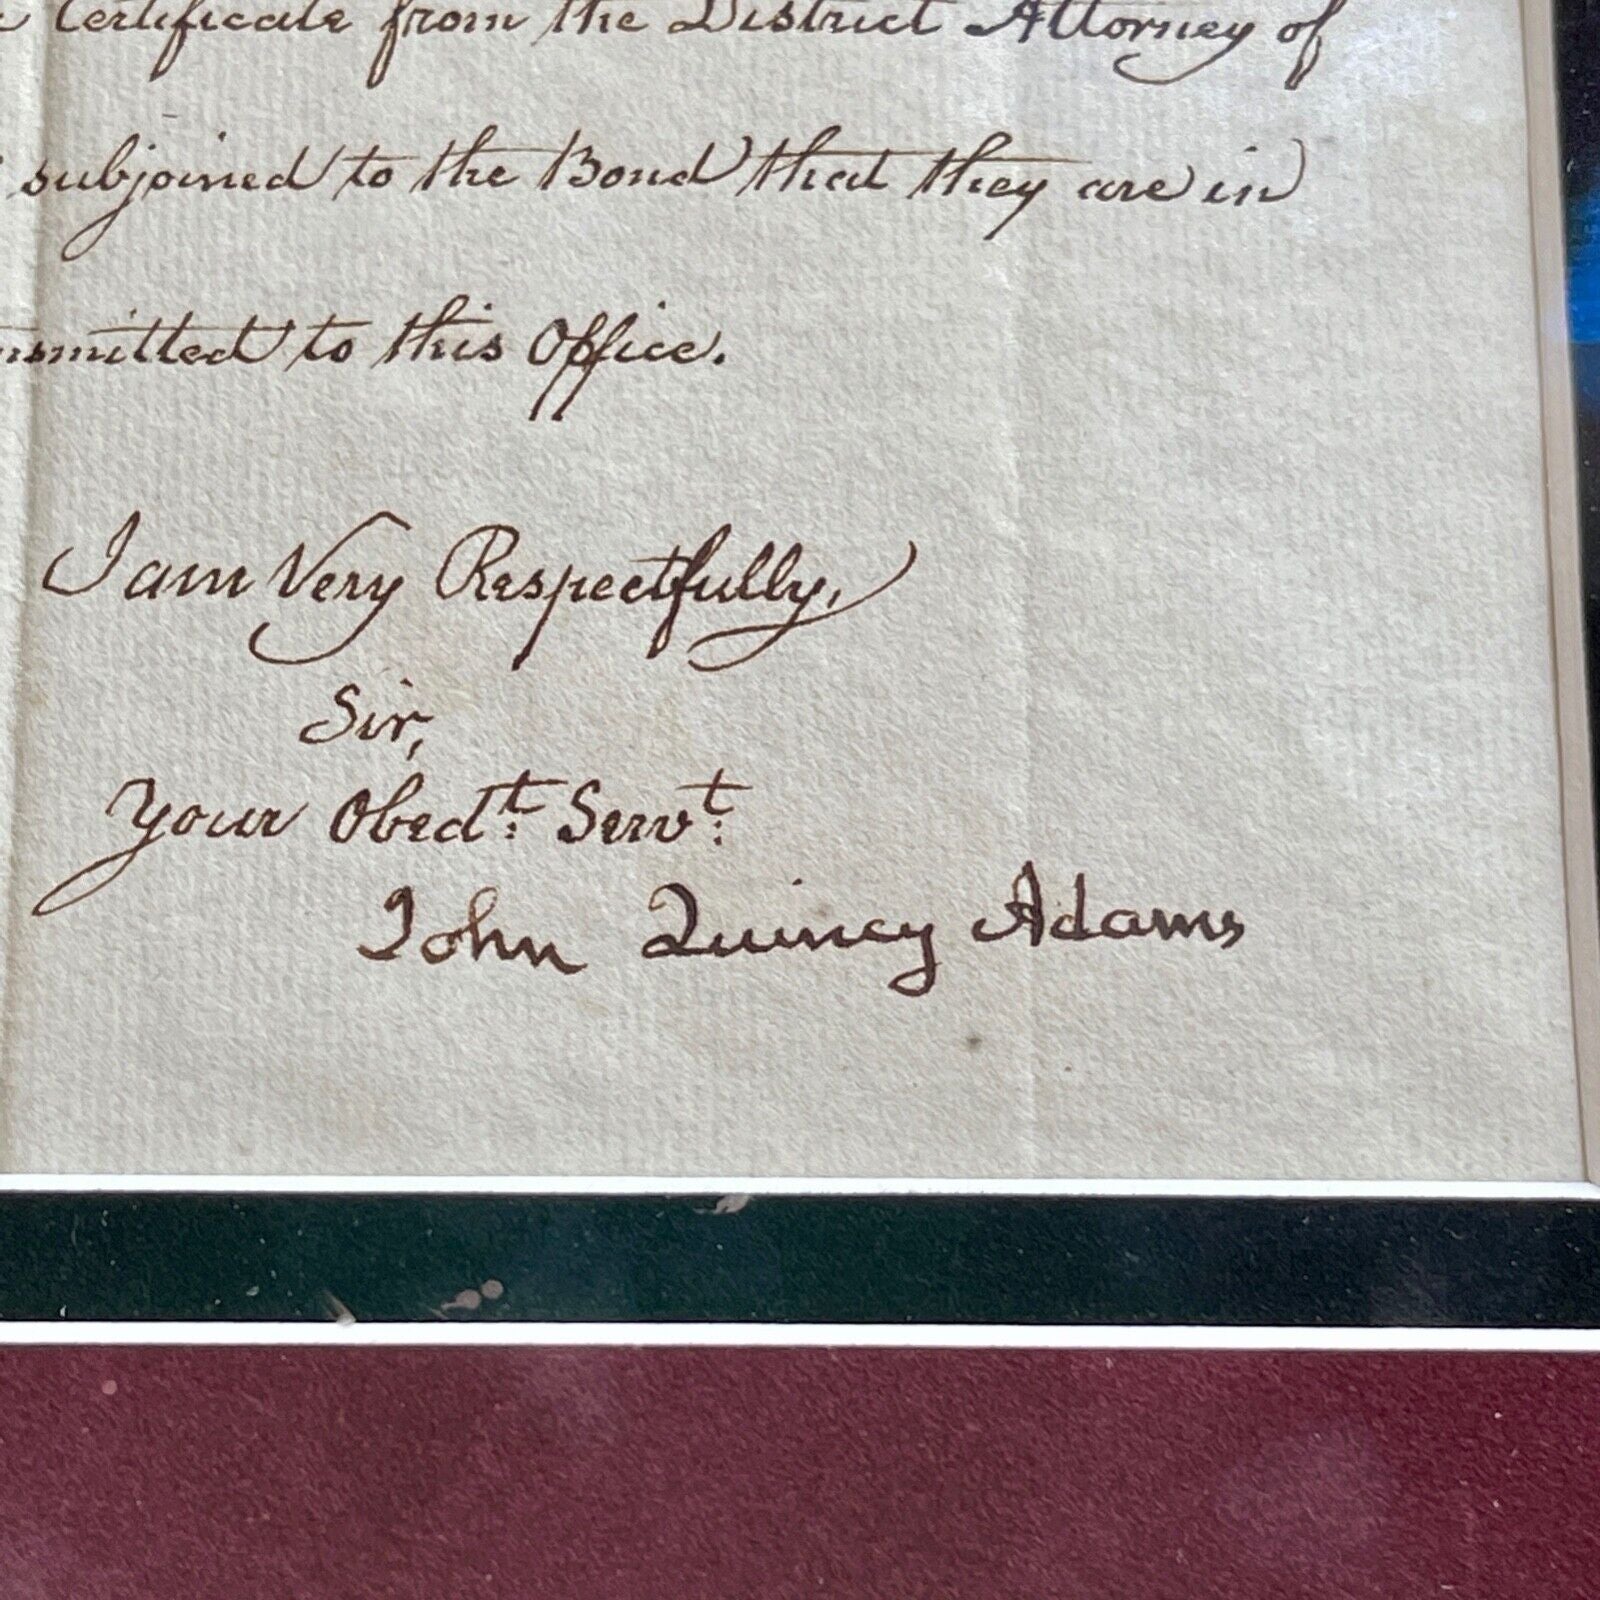 Certificate from the District Attorney of
subjoined to the Bond that they are in
nsmitted to this Office.
I am Very Respectfully,
Sir,
Your Obedt: Servt:
John Quincy Adams